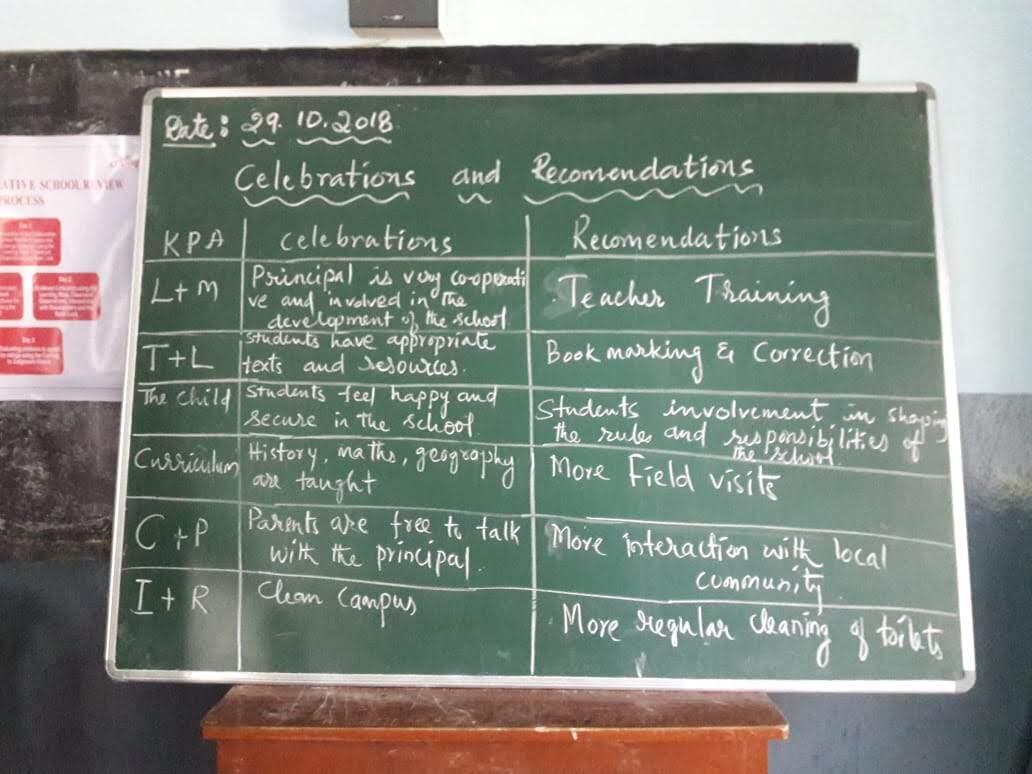 Date: 29.10.2018
Celebrations and Recomendations
KPA celebrations Recomendations
L+M Principal is very co-operati Teacher Training
ve and involved in the
development of the school
T+L Students have appropriate Book marking & Correction
texts and resources.
The Child Students feel happy and Students involvement in shaping
secure in the school the rules and responsibilities of
the school.
Curriculum History, maths, geography More Field visits
are taught
C+P Parents are free to talk More interaction with local
with the principal. community
I+R Clean Campus More regular cleaning of toilets
ATIVE SCHOOL REVIEW
PROCESS